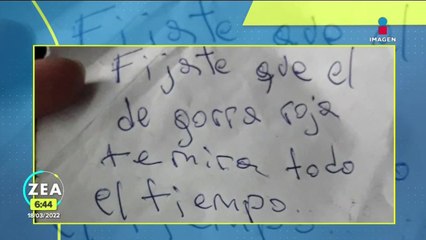 imagen
IMAGEN
Fijate que el
de gorra roja
te mira todo
el tiempo.
ZEA
6:44
18/03/2022